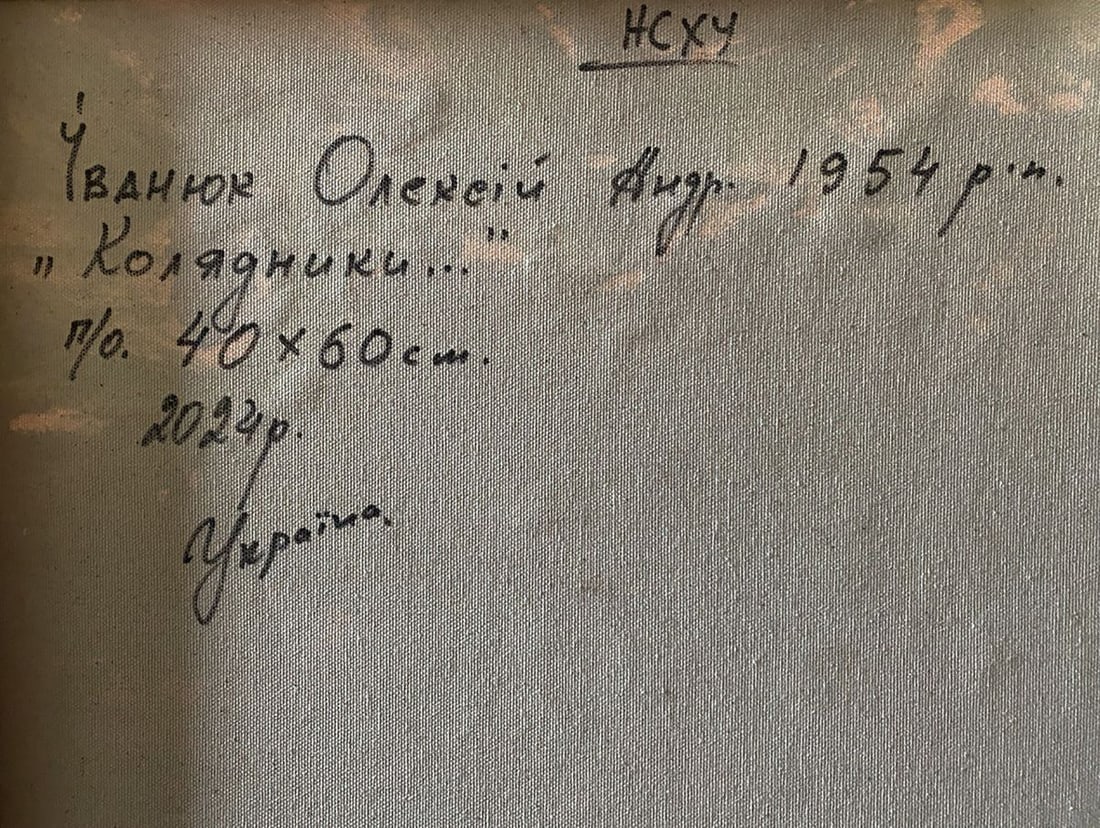 НСХУ
Іванюк Олексій Андр. 1954 р.н.
„Колядники..."
п/о. 40x60см.
2024р.
Україна.